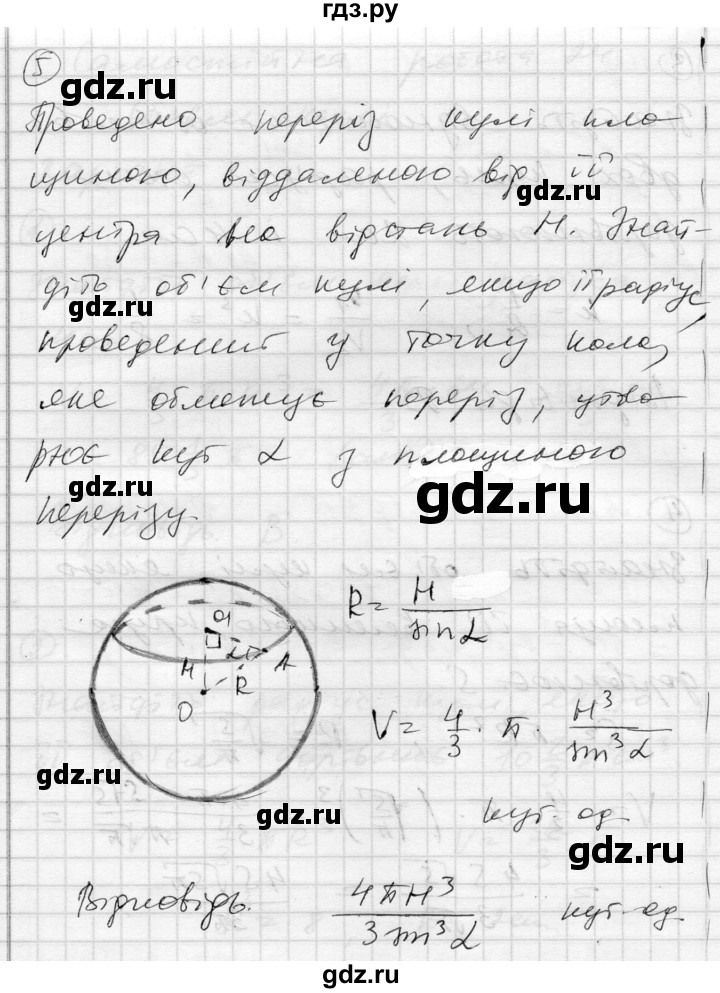 гдз.ру
5
gdz.ru
Проведено переріз кулі пло
щиною, віддаленою від її
gdz.ru
центра на відстань H. Знай-
діть об'єм кулі, якщо її радіус,
gdz.ru
проведений у точку кола,
яке обмежує переріз, утво
рює кут α з площиною
gdz.ru
gdz.ru
перерізу.
O1
α A
H R
O
R = H / sin α
gdz.ru
V = 4/3 · π · H³ / sin³ α
gdz.ru
куб. од.
gdz.ru
gdz.ru
Відповідь. 4πH³ / 3 sin³ α куб. од.
gdz.ru